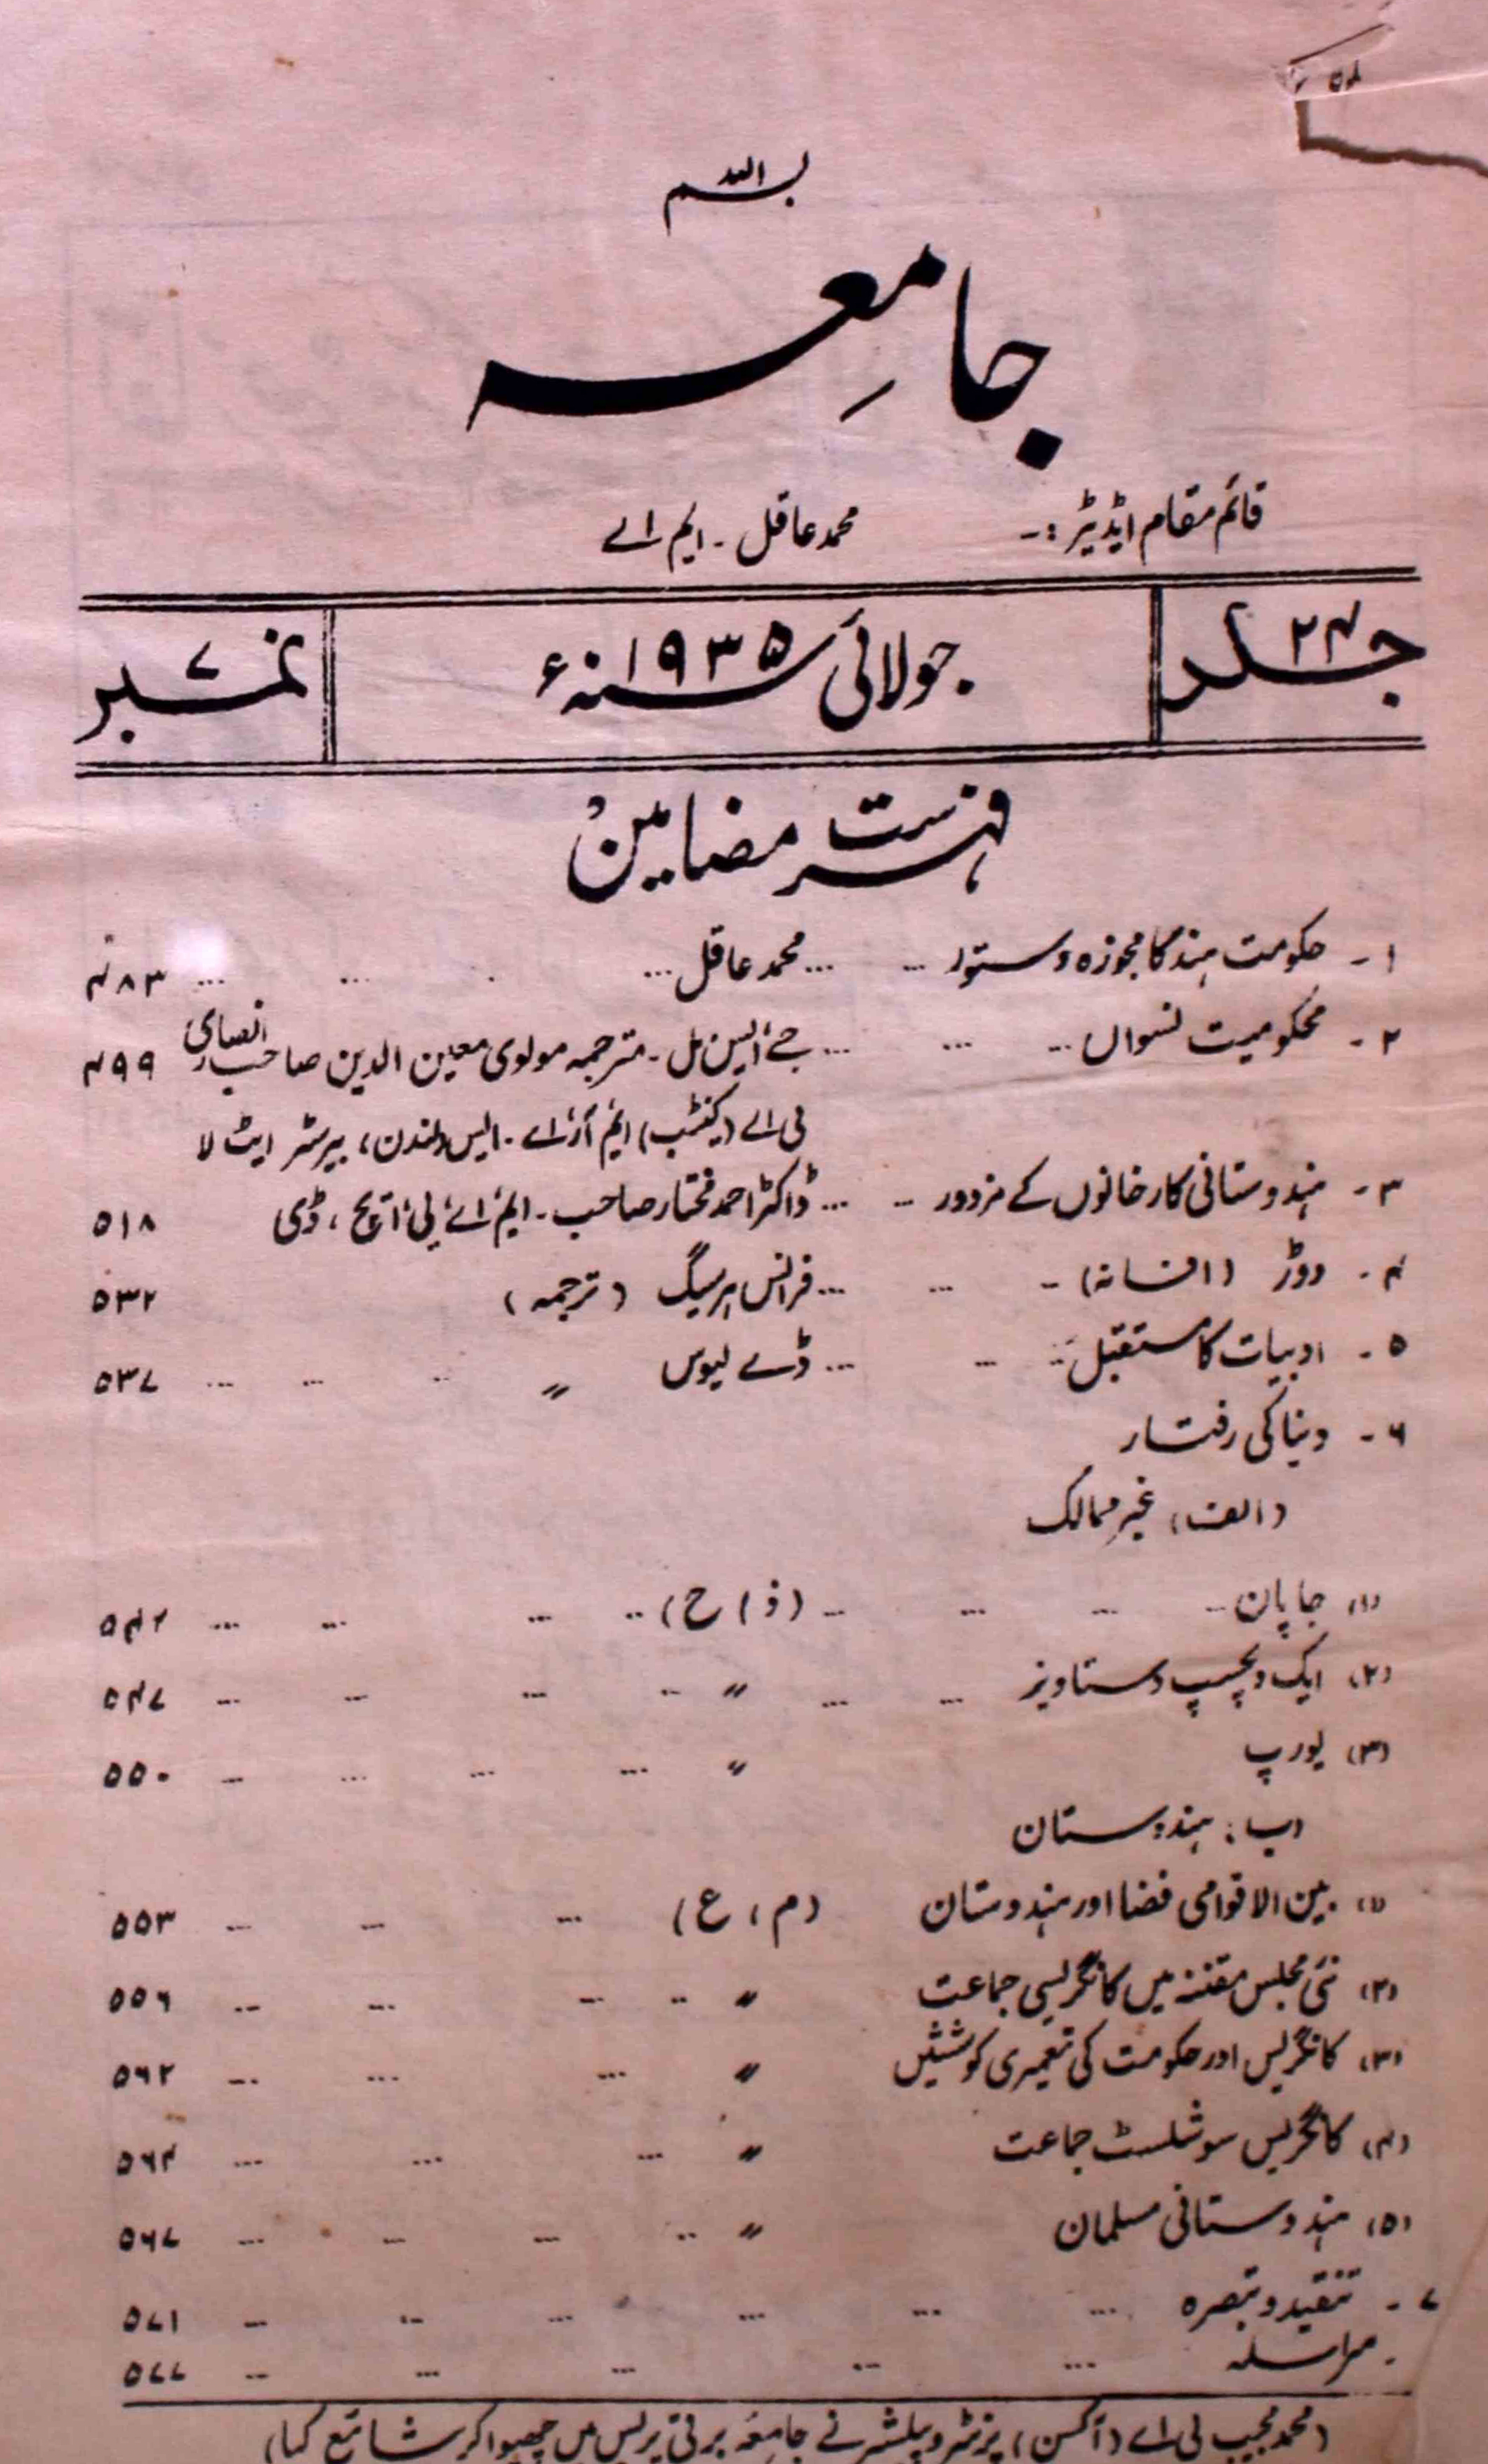 بسم اللہ
جامِعہ
قائم مقام ایڈیٹر:- محمد عاقل - ایم اے
جلد ۲۴ جولائی سنہ ۱۹۳۵ء نمبر ۷
فہرست مضامین
۱ - حکومت ہند کا مجوزہ دستور ... ... محمد عاقل ... ... ... ۴۸۳
۲ - محکومیت نسواں ... ... ... جے ایس مل - مترجمہ مولوی معین الدین صاحب انصاری ۴۹۹
بی اے (کینٹب) ایم آر اے - ایس (لندن)، بیرسٹر ایٹ لا
۳ - ہندوستانی کارخانوں کے مزدور ... ... ڈاکٹر احمد مختار صاحب - ایم اے پی ایچ، ڈی ۵۱۸
۴ - دوڑ (افسانہ) - ... ... فرانس ہرسیگ (ترجمہ) ۵۳۲
۵ - ادبیات کا مستقبل ... ... ... ڈے لیوس 〃 ... ... ... ۵۳۷
۶ - دنیا کی رفتار
(الف) غیر ممالک
(۱) جاپان ... ... ... ... (ذ ا ح) ... ... ... ... ۵۴۲
(۲) ایک دلچسپ دستاویز ... ... 〃 ... ... ... ... ۵۴۷
(۳) یورپ 〃 ... ... ... ... ۵۵۰
(ب) ہندوستان
(۱) بین الاقوامی فضا اور ہندوستان (م، ع) ... ... ... ۵۵۳
(۲) نئی مجلس مقننہ میں کانگریسی جماعت 〃 ... ... ... ... ۵۵۶
(۳) کانگریس اور حکومت کی تعمیری کوششیں 〃 ... ... ... ۵۶۲
(۴) کانگریس سوشلسٹ جماعت 〃 ... ... ... ۵۶۴
(۵) ہندوستانی مسلمان 〃 ... ... ... ... ۵۶۷
۷ - تنقید و تبصرہ ... ... ... ... ... ... ۵۷۱
- مراسلہ ... ... ... ... ... ۵۷۷
(محمد مجیب بی اے (آکسن) پرنٹر و پبلشر نے جامعہ برقی پریس میں چھپوا کر شائع کیا)